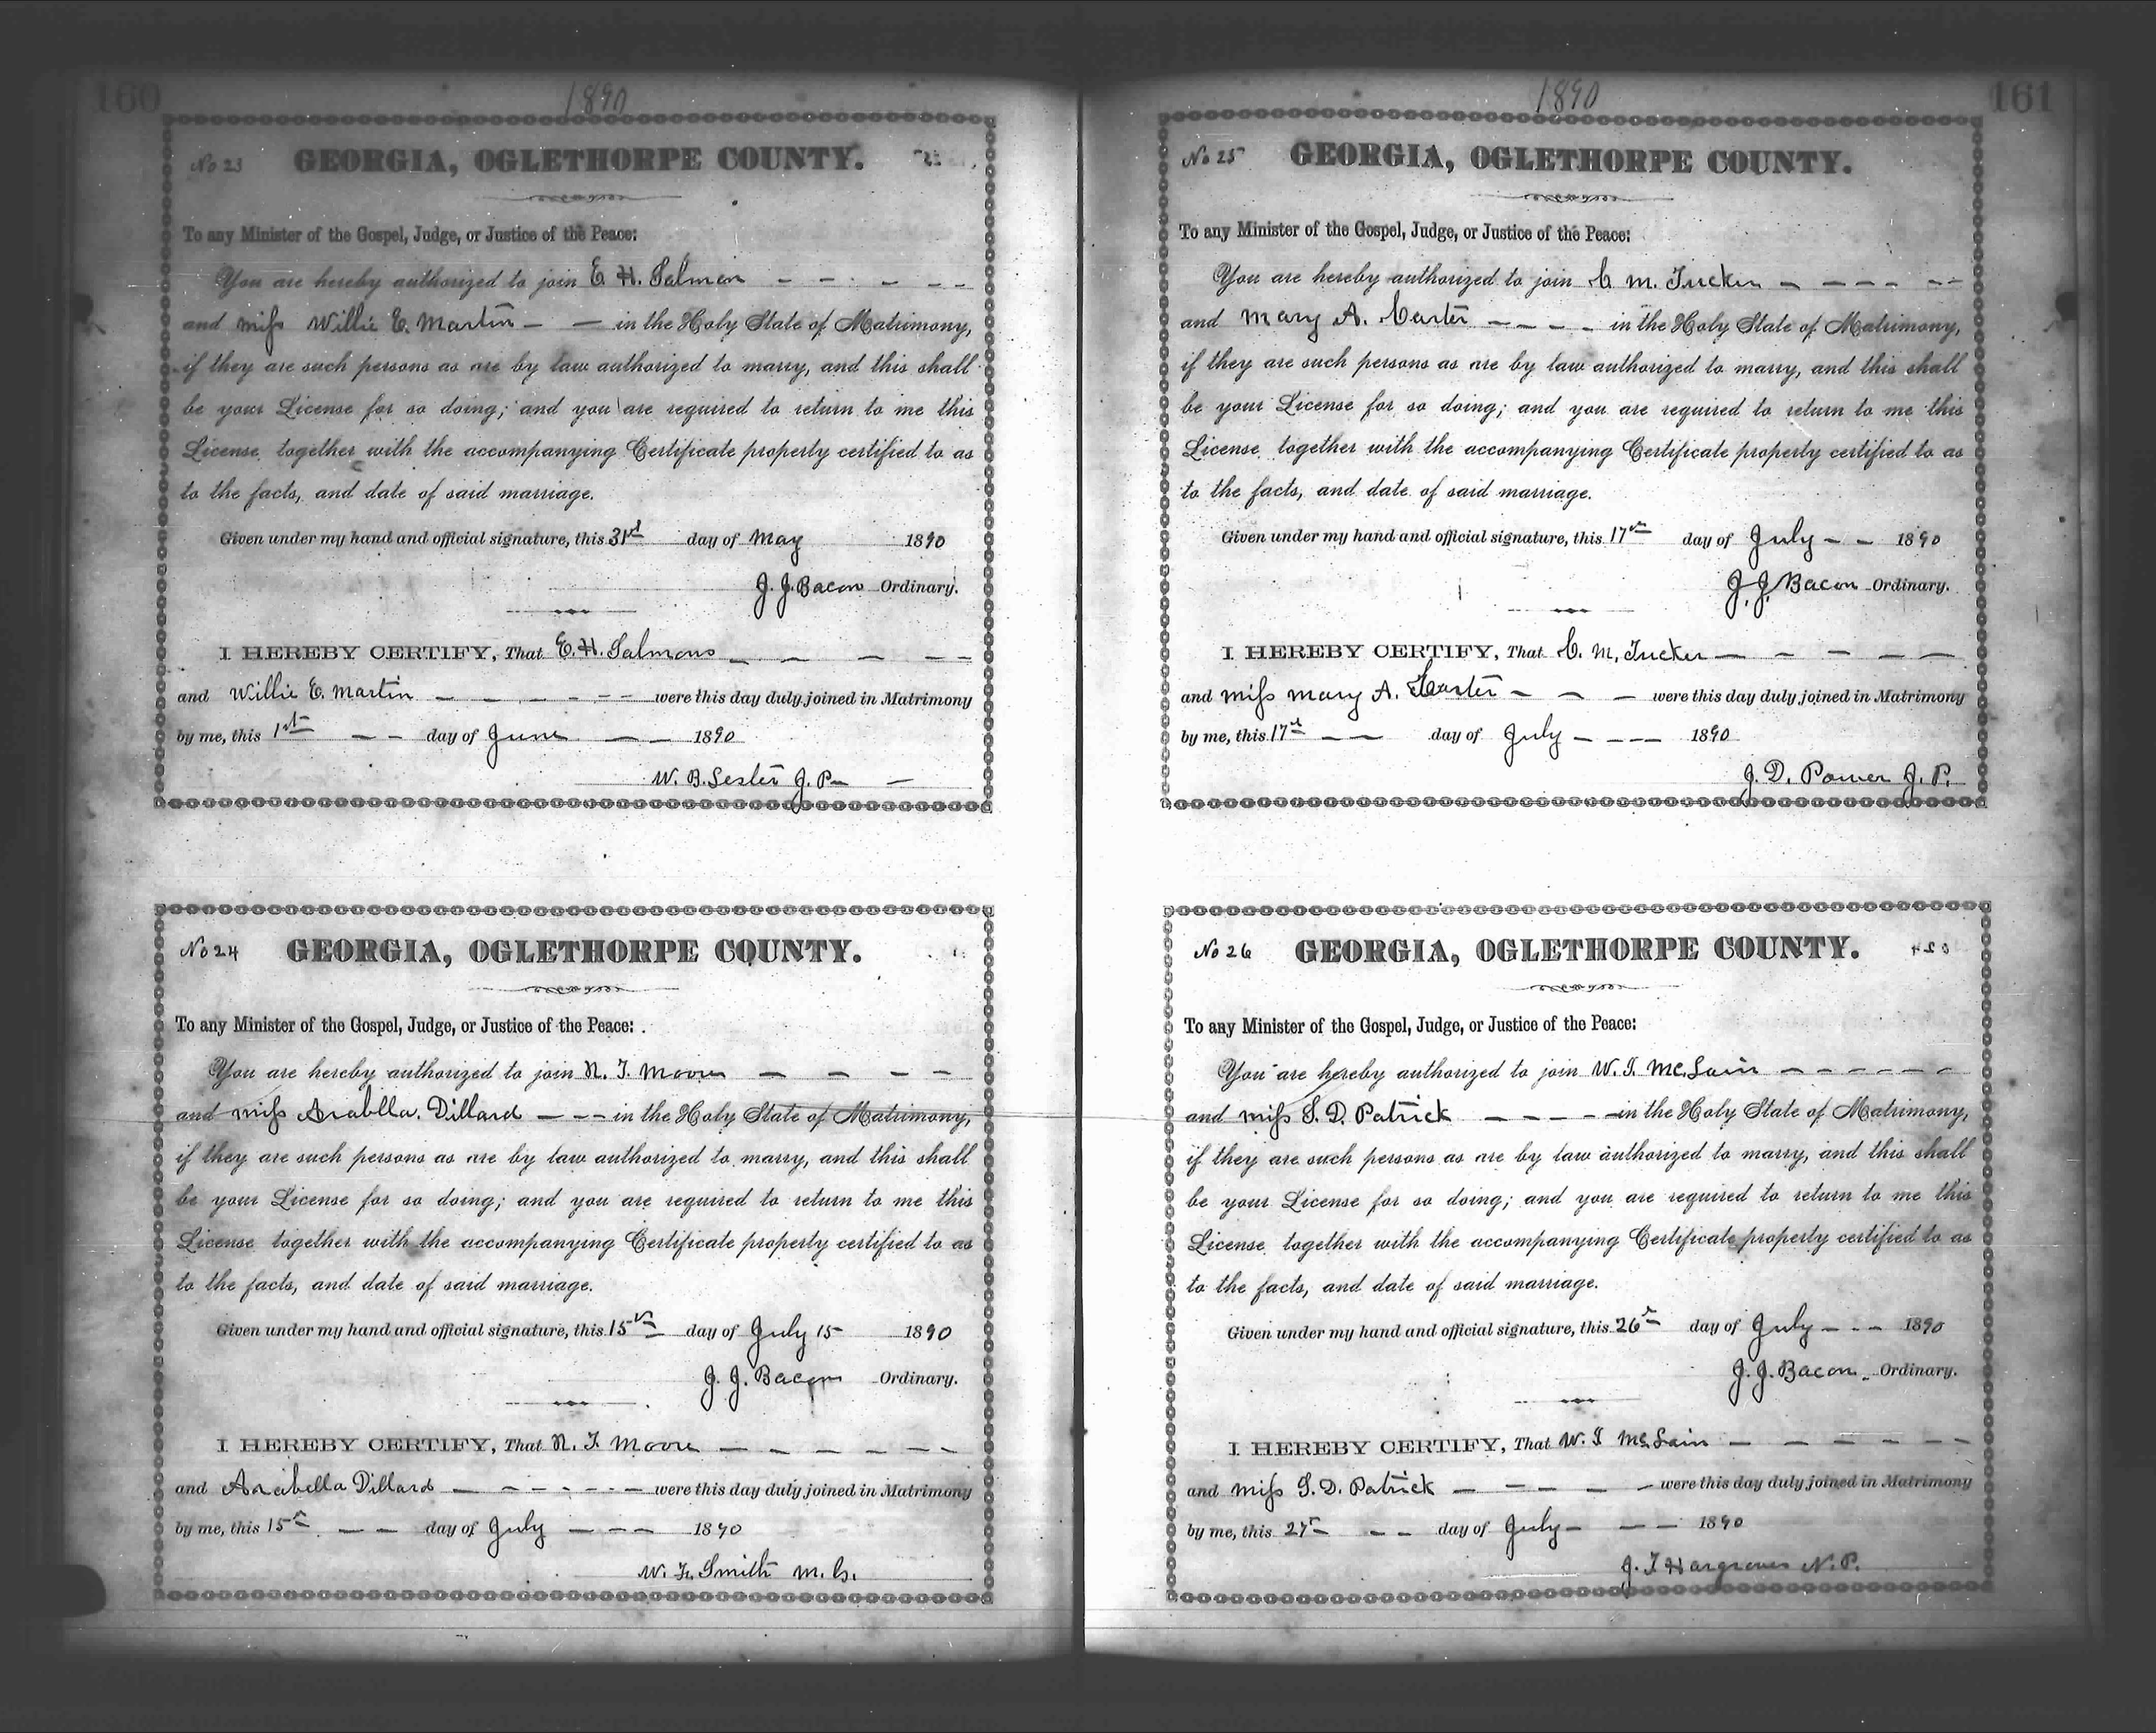 160
1890
No 23 GEORGIA, OGLETHORPE COUNTY.
To any Minister of the Gospel, Judge, or Justice of the Peace:
You are hereby authorized to join E. H. Salmon
and Miss Willie E. Martin in the Holy State of Matrimony,
if they are such persons as are by law authorized to marry, and this shall
be your License for so doing; and you are required to return to me this
License together with the accompanying Certificate property certified to as
to the facts, and date of said marriage.
Given under my hand and official signature, this 31st day of May 1890
J. J. Bacon Ordinary.
I HEREBY CERTIFY, That E. H. Salmons
and Willie E. Martin were this day duly joined in Matrimony
by me, this 1st day of June 1890
W. B. Lester J. P.
No 24 GEORGIA, OGLETHORPE COUNTY.
To any Minister of the Gospel, Judge, or Justice of the Peace:
You are hereby authorized to join N. T. Moore
and Miss Arabella Dillard in the Holy State of Matrimony,
if they are such persons as are by law authorized to marry, and this shall
be your License for so doing; and you are required to return to me this
License together with the accompanying Certificate property certified to as
to the facts, and date of said marriage.
Given under my hand and official signature, this 15th day of July 15 1890
J. J. Bacon Ordinary.
I HEREBY CERTIFY, That N. T. Moore
and Arabella Dillard were this day duly joined in Matrimony
by me, this 15th day of July 1890
W. F. Smith M. G.
1890
161
No 25 GEORGIA, OGLETHORPE COUNTY.
To any Minister of the Gospel, Judge, or Justice of the Peace:
You are hereby authorized to join C. M. Tucker
and Mary A. Carter in the Holy State of Matrimony,
if they are such persons as are by law authorized to marry, and this shall
be your License for so doing; and you are required to return to me this
License together with the accompanying Certificate property certified to as
to the facts, and date of said marriage.
Given under my hand and official signature, this 17th day of July 1890
J. J. Bacon Ordinary.
I HEREBY CERTIFY, That C. M. Tucker
and Miss Mary A. Carter were this day duly joined in Matrimony
by me, this 17th day of July 1890
J. D. Power J. P.
No 26 GEORGIA, OGLETHORPE COUNTY.
To any Minister of the Gospel, Judge, or Justice of the Peace:
You are hereby authorized to join W. T. McLain
and Miss S. D. Patrick in the Holy State of Matrimony,
if they are such persons as are by law authorized to marry, and this shall
be your License for so doing; and you are required to return to me this
License together with the accompanying Certificate property certified to as
to the facts, and date of said marriage.
Given under my hand and official signature, this 26th day of July 1890
J. J. Bacon Ordinary.
I HEREBY CERTIFY, That W. T. McLain
and Miss S. D. Patrick were this day duly joined in Matrimony
by me, this 27th day of July 1890
J. T. Hargroves N. P.